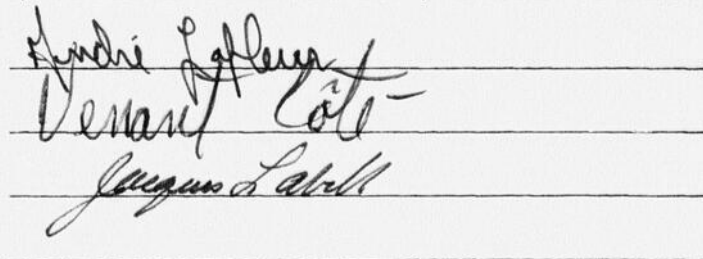 André Lafleur
Venant Côté
Jacques Labell